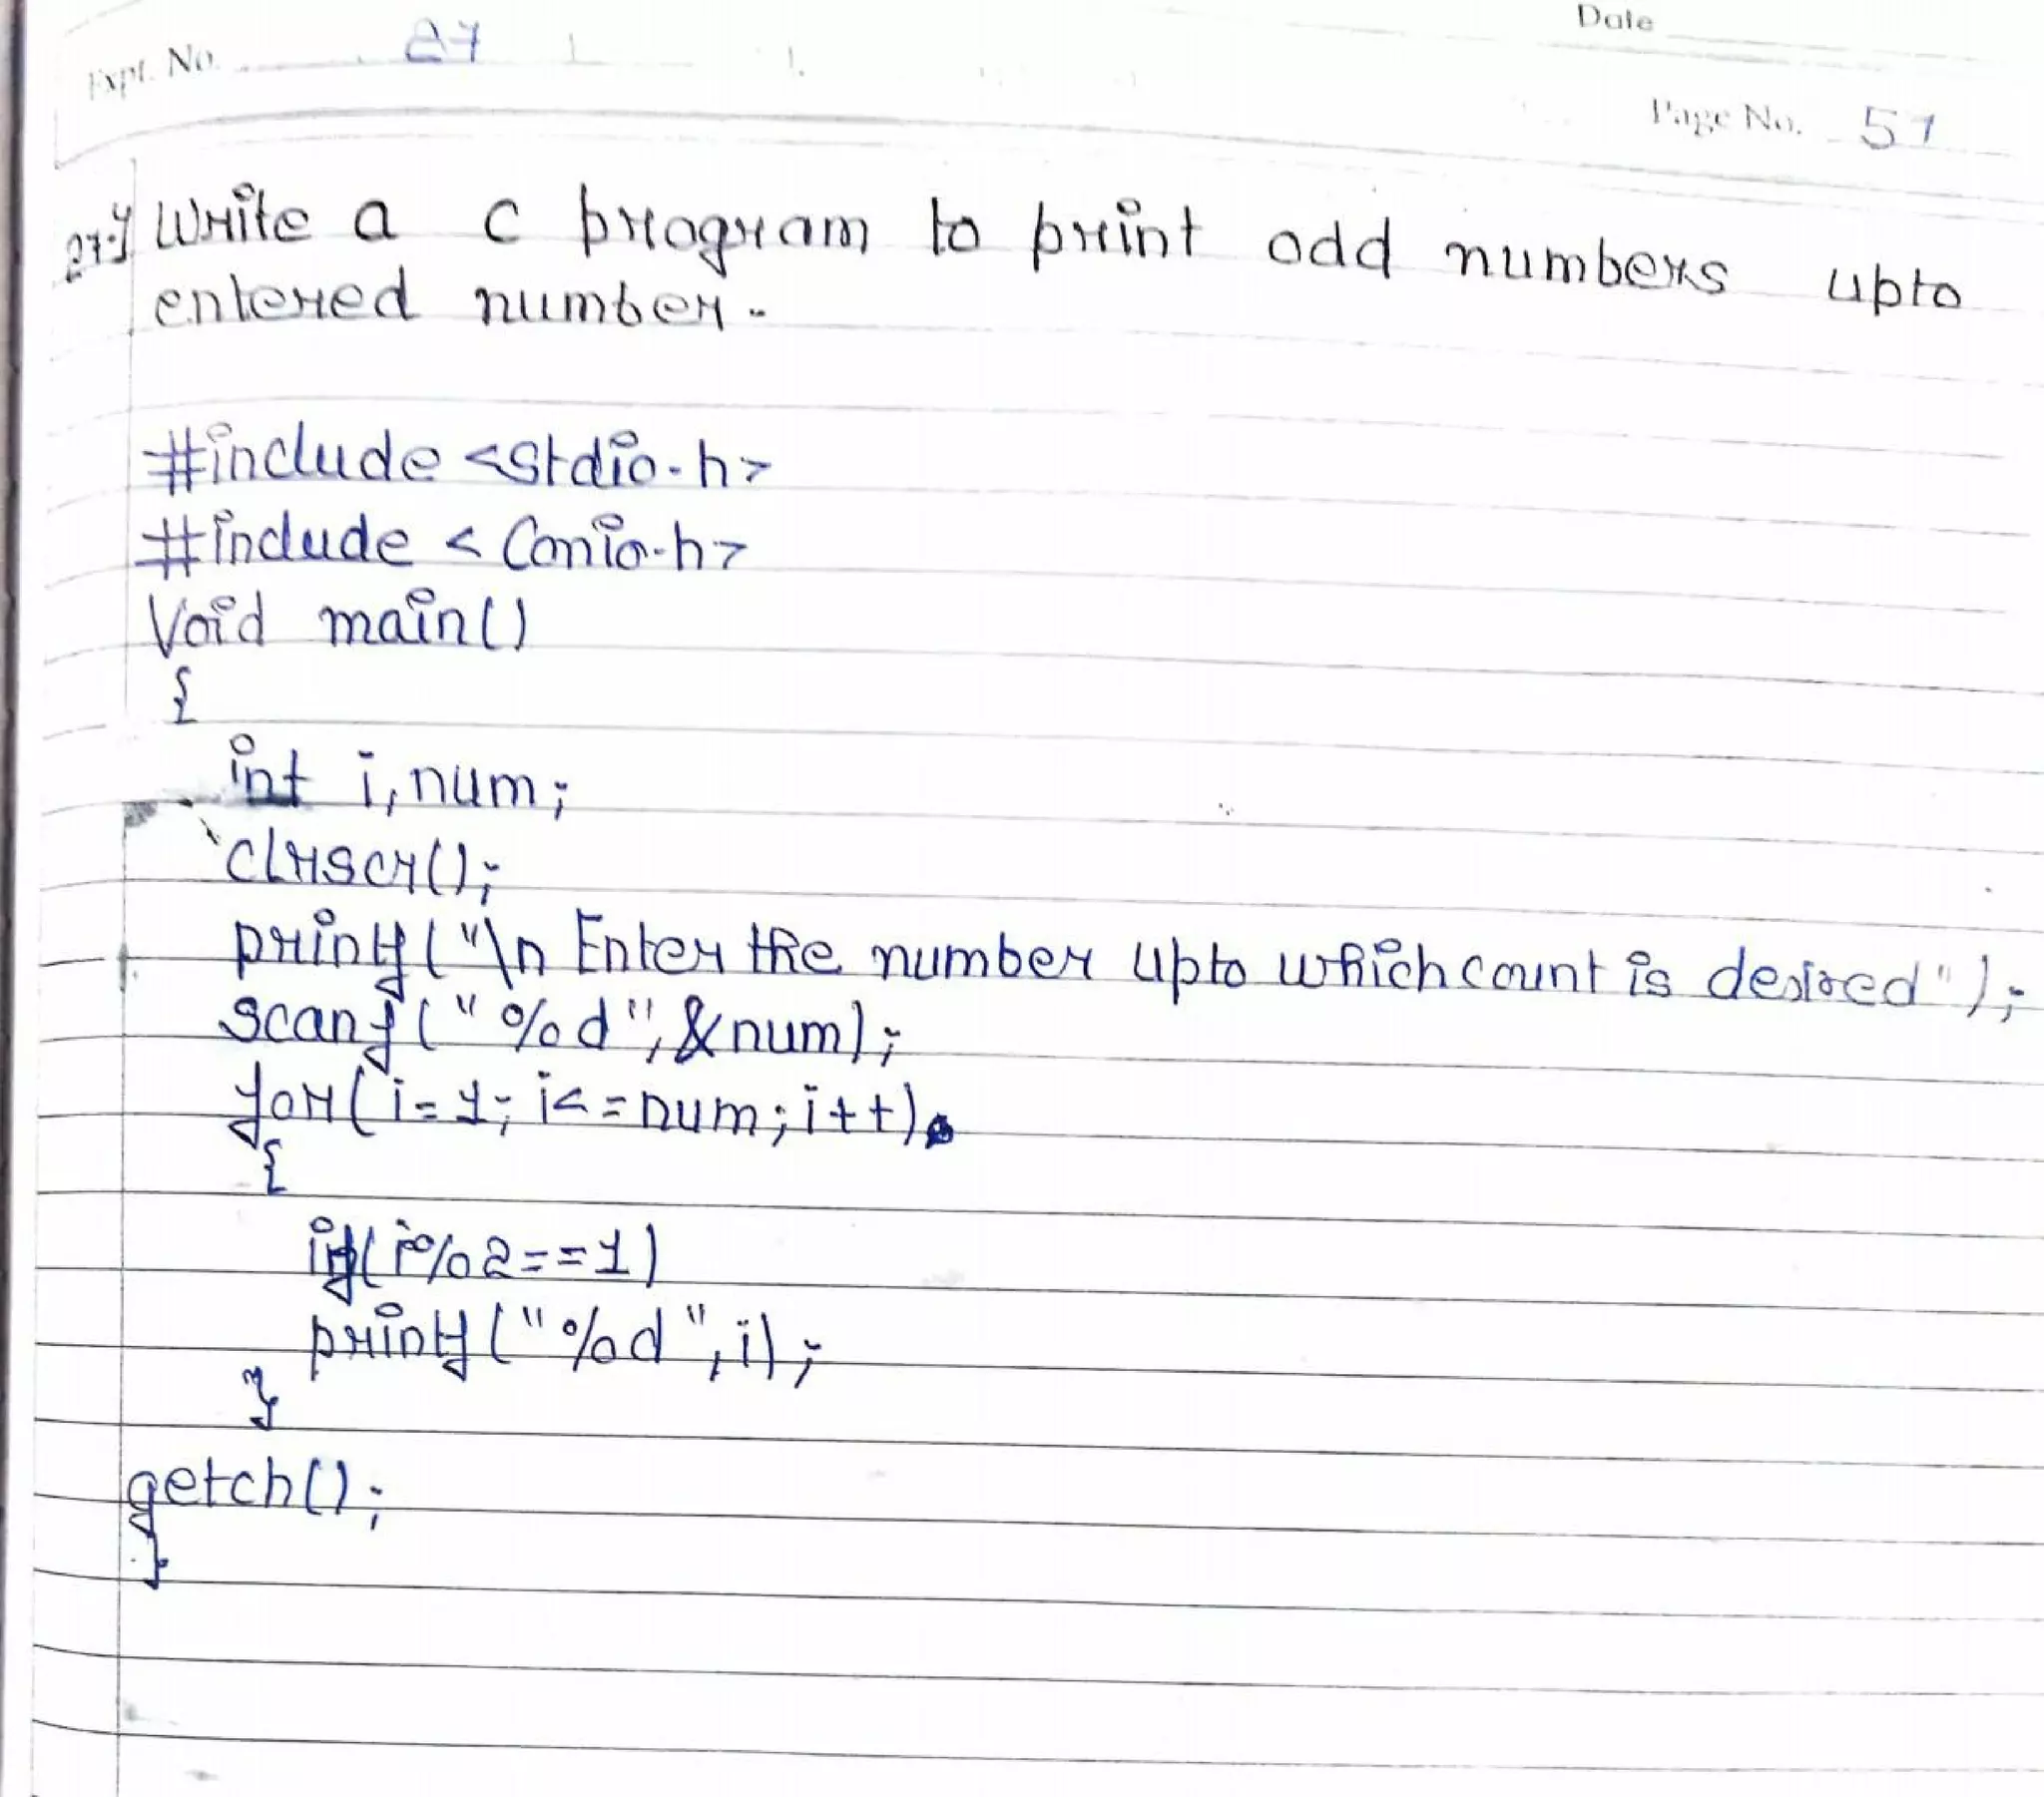 Expt. No. 27
Date
Page No. 51
27.) Write a C program to print odd numbers upto
entered number.
#include <stdio.h>
#include < Conio.h>
Void main()
{
int i, num;
clrscr();
printf("\n Enter the number upto which count is desired");
scanf("%d", &num);
for(i=1; i<=num; i++)
{
if(i%2==1)
printf("%d", i);
}
getch();
}